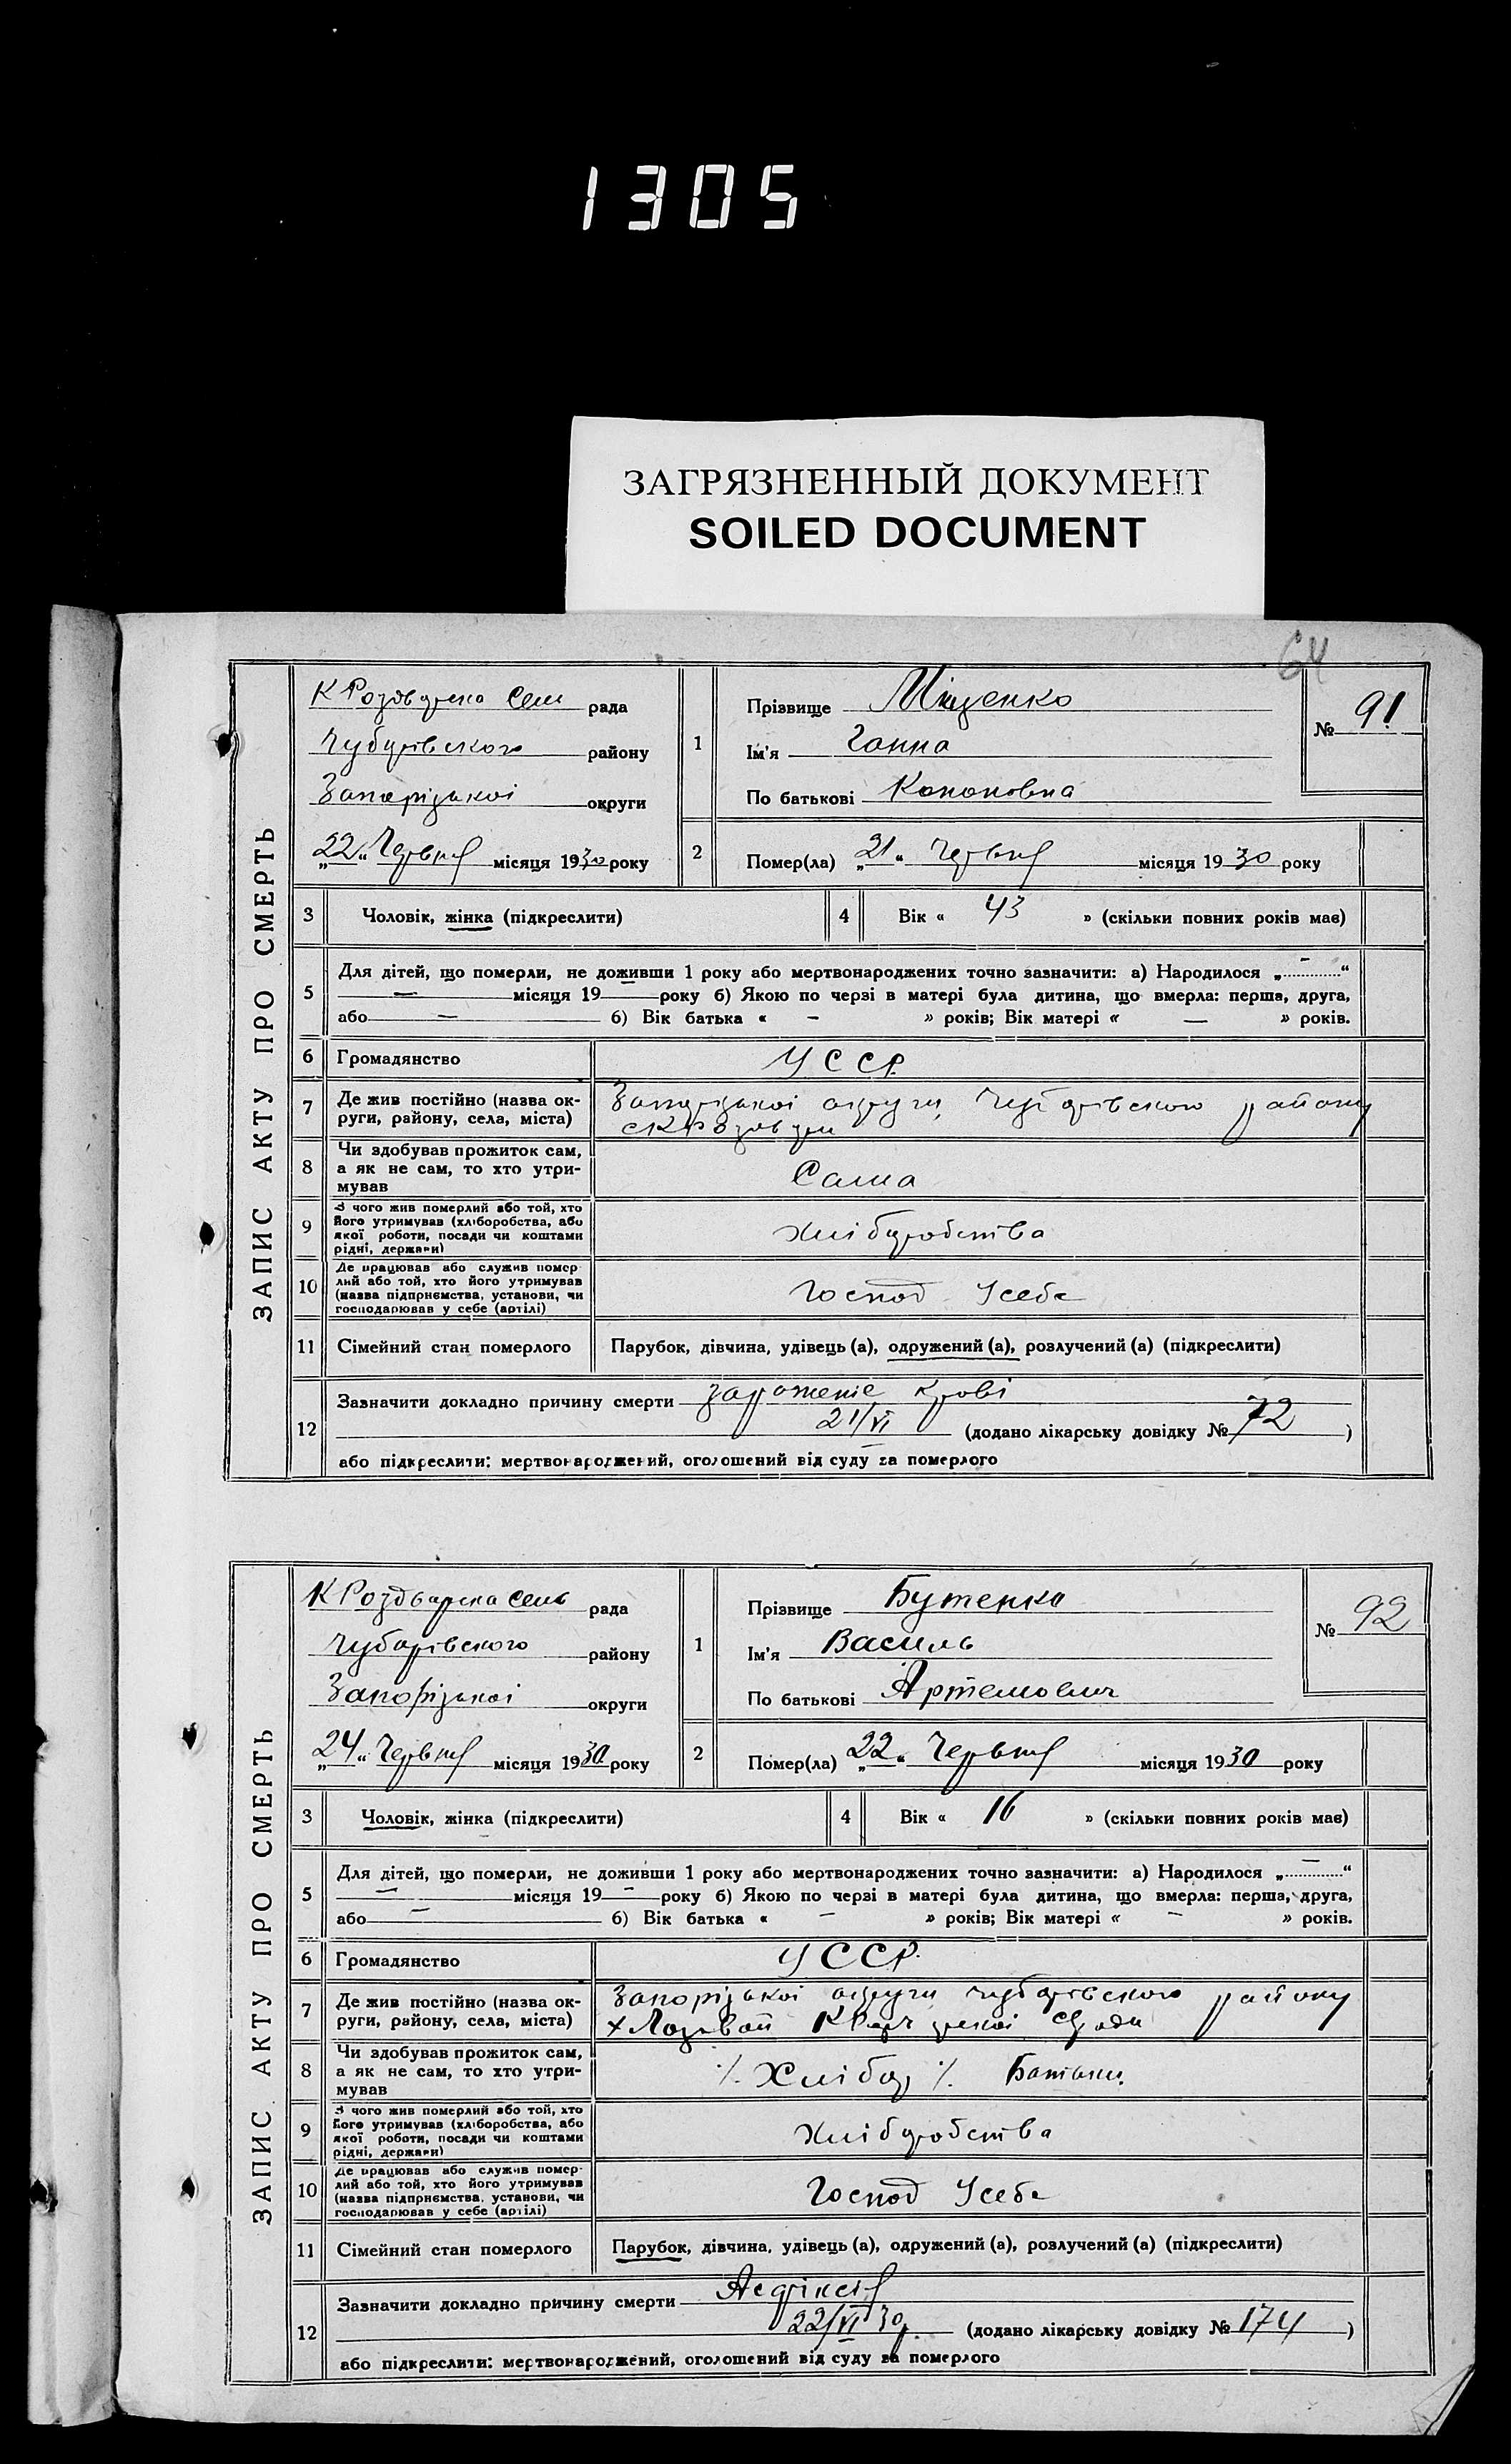 1305
ЗАГРЯЗНЕННЫЙ ДОКУМЕНТ
SOILED DOCUMENT
64
ЗАПИС АКТУ ПРО СМЕРТЬ
рада
Чубарівського району
Запорізької округи
„22“ Червня місяця 1930 року
1
Прізвище Міщенко
Ім'я Ганна
По батькові Кононовна
№ 91
2
Помер(ла) „21“ Червня місяця 1930 року
3 Чоловік, жінка (підкреслити)
4 Вік « 43 » (скільки повних років мав)
5 Для дітей, що померли, не доживши 1 року або мертвонароджених точно зазначити: а) Народилося „ – “
– місяця 19 – року б) Якою по черзі в матері була дитина, що вмерла: перша, друга,
або – б) Вік батька « – » років; Вік матері « – » років.
6 Громадянство УССР.
7 Де жив постійно (назва округи, району, села, міста)
Запорізької округи, Чубарівського району
8 Чи здобував прожиток сам,
а як не сам, то хто утри-
мував
Сама
9 З чого жив померлий або той, хто
його утримував (хліборобства, або
якої роботи, посади чи коштами
рідні, держави)
Хліборобства
10 Де працював або служив помер-
лий або той, хто його утримував
(назва підприємства, установи, чи
господарював у себе (артілі)
Господ Усебе
11 Сімейний стан померлого Парубок, дівчина, удівець (а), одружений (а), розлучений (а) (підкреслити)
12 Зазначити докладно причину смерти зараженіє крові
21/VI (додано лікарську довідку № 72 )
або підкреслити: мертвонароджений, оголошений від суду за померлого
ЗАПИС АКТУ ПРО СМЕРТЬ
рада
Чубарівського району
Запорізької округи
„24“ Червня місяця 1930 року
1
Прізвище Бутенко
Ім'я Василь
По батькові Артемович
№ 92
2
Помер(ла) „22“ Червня місяця 1930 року
3 Чоловік, жінка (підкреслити)
4 Вік « 16 » (скільки повних років мав)
5 Для дітей, що померли, не доживши 1 року або мертвонароджених точно зазначити: а) Народилося „ – “
– місяця 19 – року б) Якою по черзі в матері була дитина, що вмерла: перша, друга,
або – б) Вік батька « – » років; Вік матері « – » років.
6 Громадянство УССР.
7 Де жив постійно (назва ок-
руги, району, села, міста)
Запорізької округи Чубарівського району
8 Чи здобував прожиток сам,
а як не сам, то хто утри-
мував
·/. Хлібор ·/. Батьки.
9 З чого жив померлий або той, хто
його утримував (хліборобства, або
якої роботи, посади чи коштами
рідні, держави)
Хліборобства
10 Де працював або служив помер-
лий або той, хто його утримував
(назва підприємства, установи, чи
господарював у себе (артілі)
Господ Усебе
11 Сімейний стан померлого Парубок, дівчина, удівець (а), одружений (а), розлучений (а) (підкреслити)
12 Зазначити докладно причину смерти Асфіксія
22/VI 30р. (додано лікарську довідку № 174 )
або підкреслити: мертвонароджений, оголошений від суду за померлого